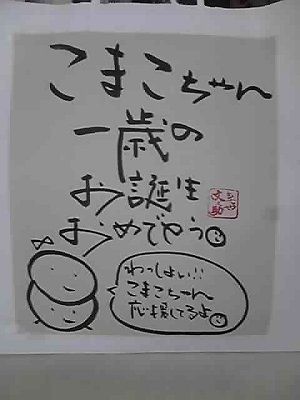 こまこちゃん
一歳の
お誕生
おめでとう
わっしょい!!
こまこちゃん
応援してるよ